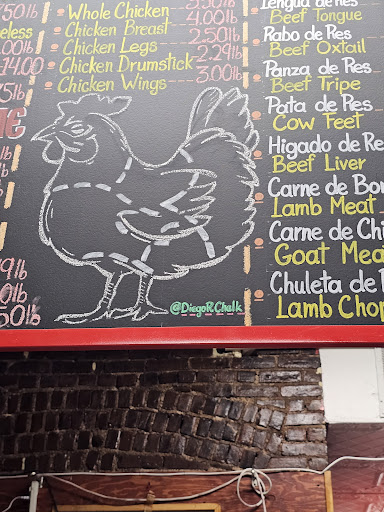 .50lb
eless
.00lb
14.00
75lb
Whole Chicken
Chicken Breast 4.00lb
Chicken Legs 2.50lb
Chicken Drumstick 2.29lb
Chicken Wings 3.00lb
9lb
0lb
50lb
@DiegoR.Chalk
Lengua de Res
Beef Tongue
Rabo de Res
Beef Oxtail
Panza de Res
Beef Tripe
Pata de Res
Cow Feet
Higado de Re
Beef Liver
Carne de Bor
Lamb Meat
Carne de Chi
Goat Mea
Chuleta de
Lamb Chop